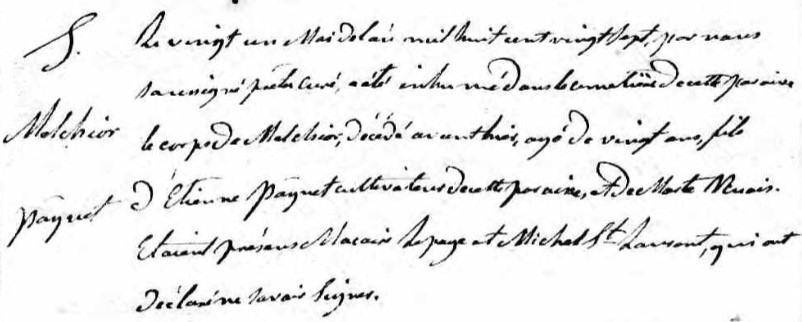 S.
Melchior
Pâquet
Le vingt un Mai de l'an mil huit cent vingt sept, par nous
soussigné prêtre curé, a été inhumé dans le cimetière de cette paroisse
le corps de Melchior, décédé avant hier, agé de vingt ans, fils
d'Étienne Pâquet cultivateur de cette paroisse, et de Marte
Étaient présens Macaire Lepage et Michel St. Laurent, qui ont
déclaré ne savoir signer.